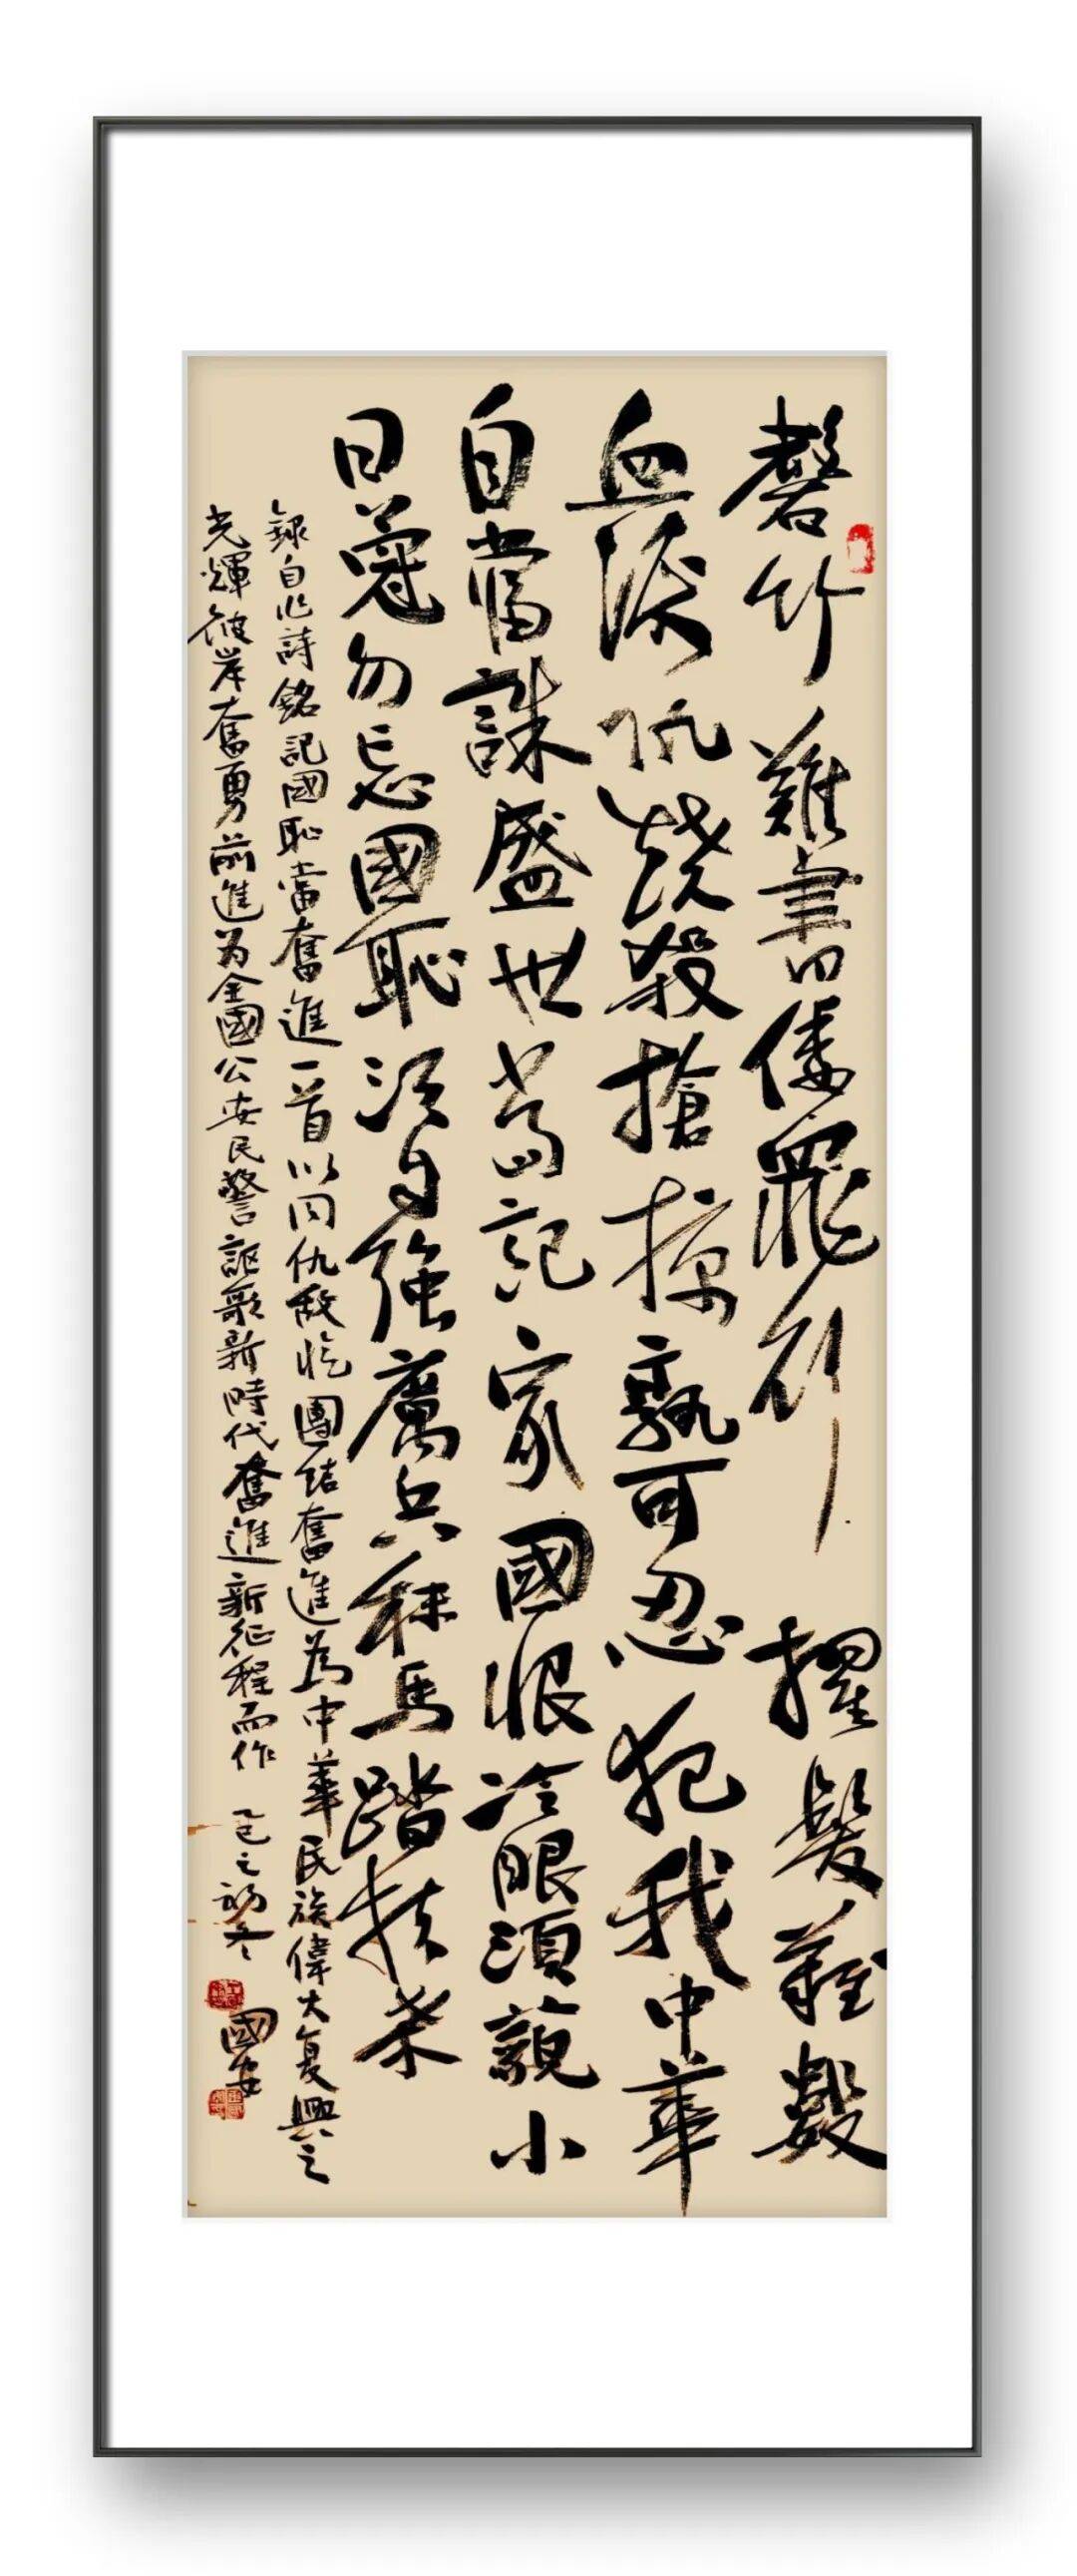 磬竹難書倭罪行擢髮難數
血淚仇燒殺搶掠孰可忍犯我中華
自當誅盛世記家國恨冷眼須藐小
日寇勿忘國恥須自強厲兵秣馬踏扶桑
錄自作詩銘記國恥當奮進一首以同仇敵愾團結奮進為中華民族偉大复興之
光輝彼岸奮勇前進为全國公安民警謳歌新時代奮進新征程而作 乙巳之初冬 國安